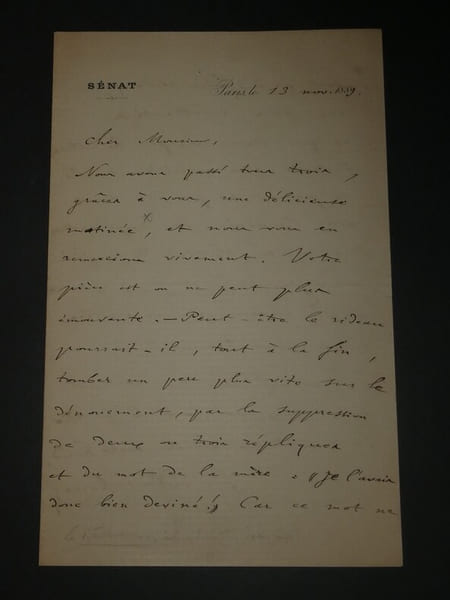 SÉNAT
Paris, le 13 nov. 1889.
Cher Monsieur,
Nous avons passé tous trois,
grâce à vous, une délicieuse
matinée, et nous vous en
remercions vivement. Votre
pièce est on ne peut plus
émouvante. — Peut-être le rideau
pourrait-il, tout à la fin,
tomber un peu plus vite sur le
dénouement, par la suppression
de deux ou trois répliques
et du mot de la mère : "Je l'avais
donc bien deviné!" Car ce mot ne